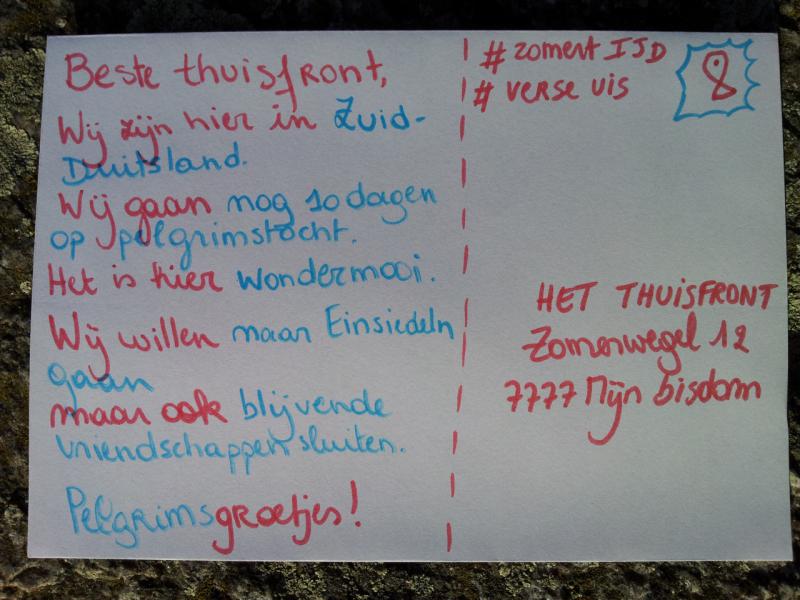 Beste thuisfront,
Wij zijn hier in Zuid-
Duitsland.
Wij gaan nog 10 dagen
op pelgrimstocht.
Het is hier wondermooi.
Wij willen naar Einsiedeln
gaan
maar ook blijvende
vriendschappen sluiten.
Pelgrimsgroetjes!
# zomert IJD
# verse vis
8
HET THUISFRONT
Zomerwegel 12
7777 Mijn bisdom